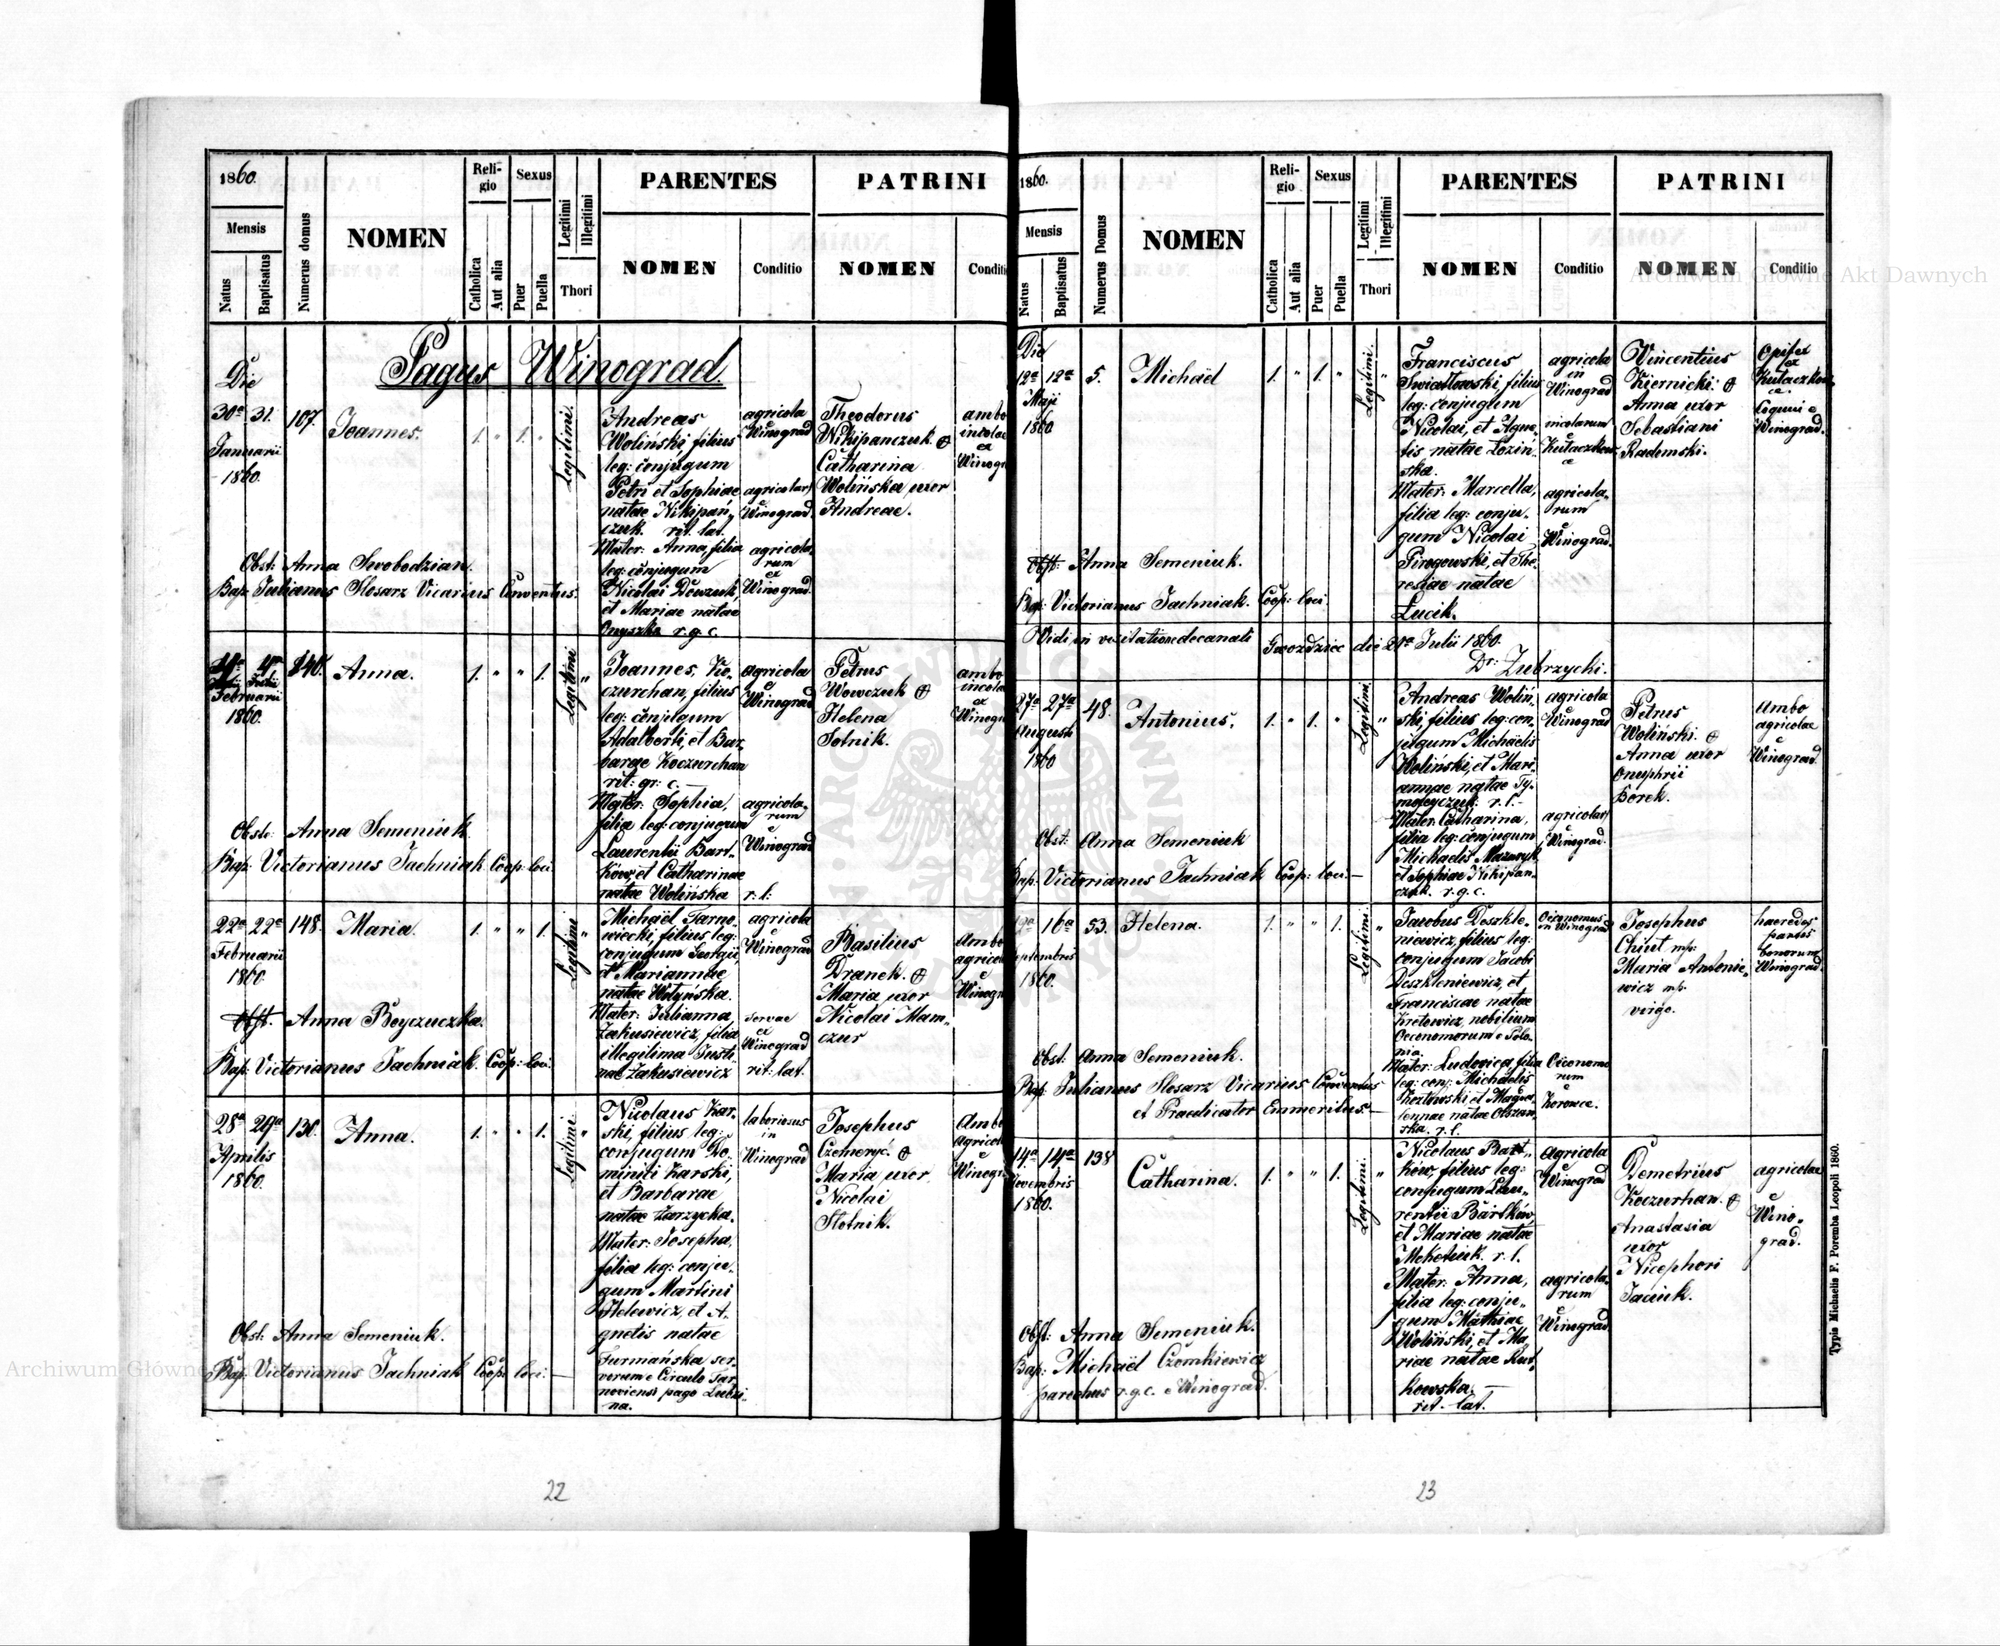 1860.
Mensis
Natus
Baptisatus
Numerus domus
NOMEN
Reli-
gio
Catholica
Aut alia
Sexus
Puer
Puella
Legitimi
Illegitimi
Thori
PARENTES
NOMEN
Conditio
PATRINI
NOMEN
Conditi
Pagus Winograd
Die
30a 31.
Januarii
1860.
107.
Joannes.
1. " 1. "
Legitimi.
Andreas
Woliński, filius
leg: conjugum
Petri et Sophiae
natae Nikipań„
czuk. rit. lat.
Mater: Anna, filia
leg: conjugum
Nicolai Dowzuk,
et Mariae natae
Onyszko r. g. c.
agricola
Winograd
agricolar)
Winograd.
agricola„
rum
ex
Winograd.
Theodorus
Nikipanczuk. &
Catharina
Wolińska uxor
Andreae.
ambo
incolae
ex
Winogr
Obst: Anna Swobodzian.
Bap: Julianus Slosarz Vicarius Conventus.
4a
Februarii
1860.
140.
Anna.
1. " " 1.
Legitimi "
Joannes, Ko„
czurchan, filius
leg: conjugum
Adalberti, et Bar„
barae Koczurchan
rit: gr: c. —
Mater: Sophia,
filia leg: conjugum
Laurentii Bart„
ków, et Catharinae
natae Wolińska
agricola
e
Winograd
agricola„
rum
e
Winograd
r. l.
Petrus
Wowczuk &
Helena
Sotnik.
ambo
incola
ex
Winogr
Obste: Anna Semeniuk.
Bap: Victorianus Jachniak Coop: loci.
22a 22a
Februarii
1860.
148.
Maria.
1. " " 1.
Legitimi "
Michaël Tarno„
wiecki, filius leg:
conjugum Georgii
et Mariannae
natae Wotyńska.
Mater: Julianna,
Zakusiewicz, filia
illegitima Justi„
nae Zakusiewicz
agricola
e
Winograd
servae
ex
Winograd
rit: lat.
Basilius
Dranek. &
Maria uxor
Nicolai Mam„
czur
Ambo
agricol
e
Winogr
Obst. Anna Boyczuczka.
Bap: Victorianus Jachniak. Coop: loci.
28a 29a
Aprilis
1860.
130.
Anna.
1. " " 1.
Legitimi. "
Nicolaus Kar„
ski, filius leg:
conjugum Do„
minici Karski,
et Barbarae
natae Zarzycka.
Mater: Josepha,
filia leg: conju„
gum Martini
Helewicz, et A„
gnetis natae
Furmańska ser„
vorum e Circulo Tar„
noviensi pago Lubzi„
na.
laboriosus
in
Winograd
Josephus
Czemeryć. &
Maria uxor
Nicolai
Slotnik.
Amb
agricol
e
Winogr
Obst: Anna Semeniuk.
Bap: Victorianus Jachniak Coop: loci: —
22
1860.
Mensis
Natus
Baptisatus
Numerus Domus
NOMEN
Reli-
gio
Catholica
Aut alia
Sexus
Puer
Puella
Legitimi
Illegitimi
Thori
PARENTES
NOMEN
Conditio
PATRINI
NOMEN
Conditio
Die
12a 12a
Maji
1860
5.
Michaël
1. " 1. "
Legitimi. "
Franciscus
Swiatowski, filius
leg: conjugum
Nicolai, et Agne„
tis natae Łoziń„
ska.
Mater: Marcella,
filia leg: conju„
gum Nicolai
Pirogowski, et The„
resiae natae
Lucik.
agricola
in
Winograd
incolarum
e
agricola„
rum
e
Winograd.
Vincentius
Kiernicki. &
Anna uxor
Sebastiani
Radomski.
Opifex
ex
Winograd.
Obst: Anna Semeniuk.
Bap: Victorianus Jachniak. Coop: loci.
Vidi in visitatione decanali Gwozdziec die 21a Julii 1860.
Dr: Zubrzycki.
27a 27a
Augusti
1860
48.
Antonius,
1. " 1. "
Legitimi. "
Andreas Woliń„
ski, filius leg: con„
jugum Michaëlis
Woliński, et Mari„
annae natae Ty„
mofeyczuk. r. l. —
Mater: Catharina,
filia leg: conjugum
Michaëlis Mazuryk
et Sophiae Nikipan„
czuk. r. g. c.
agricola
e
Winograd
agricolar)
e
Winograd.
Petrus
Woliński. &
Anna uxor
Onuphrii
Borek.
ambo
agricolae
e
Winograd.
Obst: Anna Semeniuk
Bap: Victorianus Jachniak Coop: loci: —
16a
Septembris
1860.
53.
Helena.
1. " " 1.
Legitimi. "
Jacobus Doszkle„
niewicz, filius leg:
conjugum Jacobi
Doszkleniewicz, et
Franciscae natae
Kretowicz, nobilium
Oeconomorum e Polo„
nia.
Mater: Ludovica, filia
leg: conj: Michaëlis
Kozłowski et Magda„
lennae natae Olszań„
ska. r. l.
Oeconomus
in Winograd
Oeconomo
rum
e
Korowce.
Josephus
Chiut mp:
Maria Antonie„
wicz mp.
virgo.
haeredes
partis
bonorum
Winograd.
Obst: Anna Semeniuk.
Bap: Julianus Slosarz Vicarius Conventus
et Praedicator Emmeritus. —
14a 14a
Novembris
1860.
138
Catharina.
1. " " 1.
Legitimi. "
Nicolaus Bart„
ków, filius leg:
conjugum Lau„
rentii Bartków,
et Mariae natae
Meketiuk. r. l.
Mater: Anna,
filia leg: conju„
gum Mathiae
Woliński, et Ma„
riae natae Rut„
kowska. —
rit. lat.
agricola
e
Winograd
agricola„
rum
e
Winograd.
Demetrius
Koczurhan. &
Anastasia
uxor
Nicephori
Jaciuk.
agricolae
e
Wino„
grad.
Obst: Anna Semeniuk.
Bap: Michaël Czomkiewicz
parochus r. g. c. e Winograd.
Typis Michaelis F. Poremba Leopoli 1860.
23
Archiwum Główne Akt Dawnych
Archiwum Główne Akt Dawnych